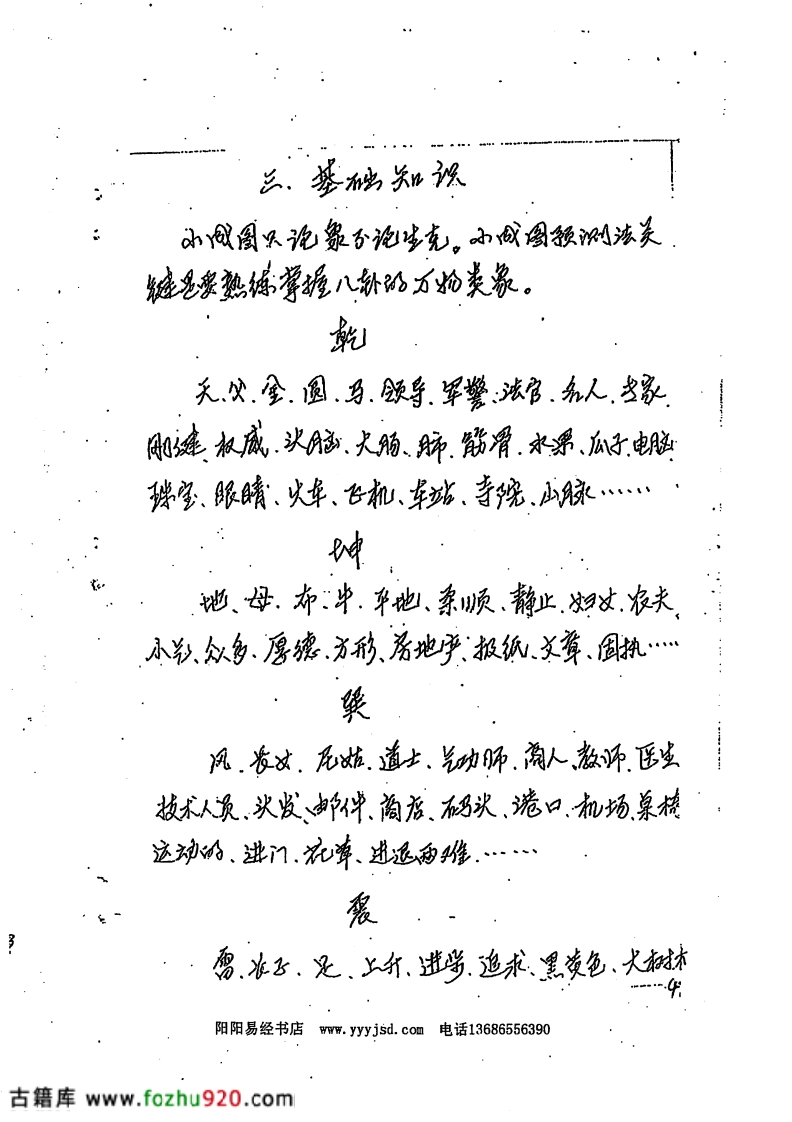 三、基础知识
小成图只论象不论生克。小成图预测法关
键是要熟练掌握八卦的万物类象。
乾
天、父、金、圆、马、领导、军警、法官、名人、专家、
刚健、权威、头脑、大肠、肺、筋骨、水果、瓜子、电脑
珠宝、眼睛、火车、飞机、车站、寺院、山脉……
坤
地、母、布、牛、平地、柔顺、静止、妇女、农夫、
小气、众多、厚德、方形、房地产、报纸、文章、固执……
巽
风、长女、尼姑、道士、气功师、商人、教师、医生
技术人员、头发、邮件、商店、码头、港口、机场、桌椅
运动的、进门、花草、进退两难……
震
雷、长子、足、上升、进步、追求、黑黄色、大树林
4
阳阳易经书店 www.yyyjsd.com 电话13686556390
古籍库 www.fozhu920.com